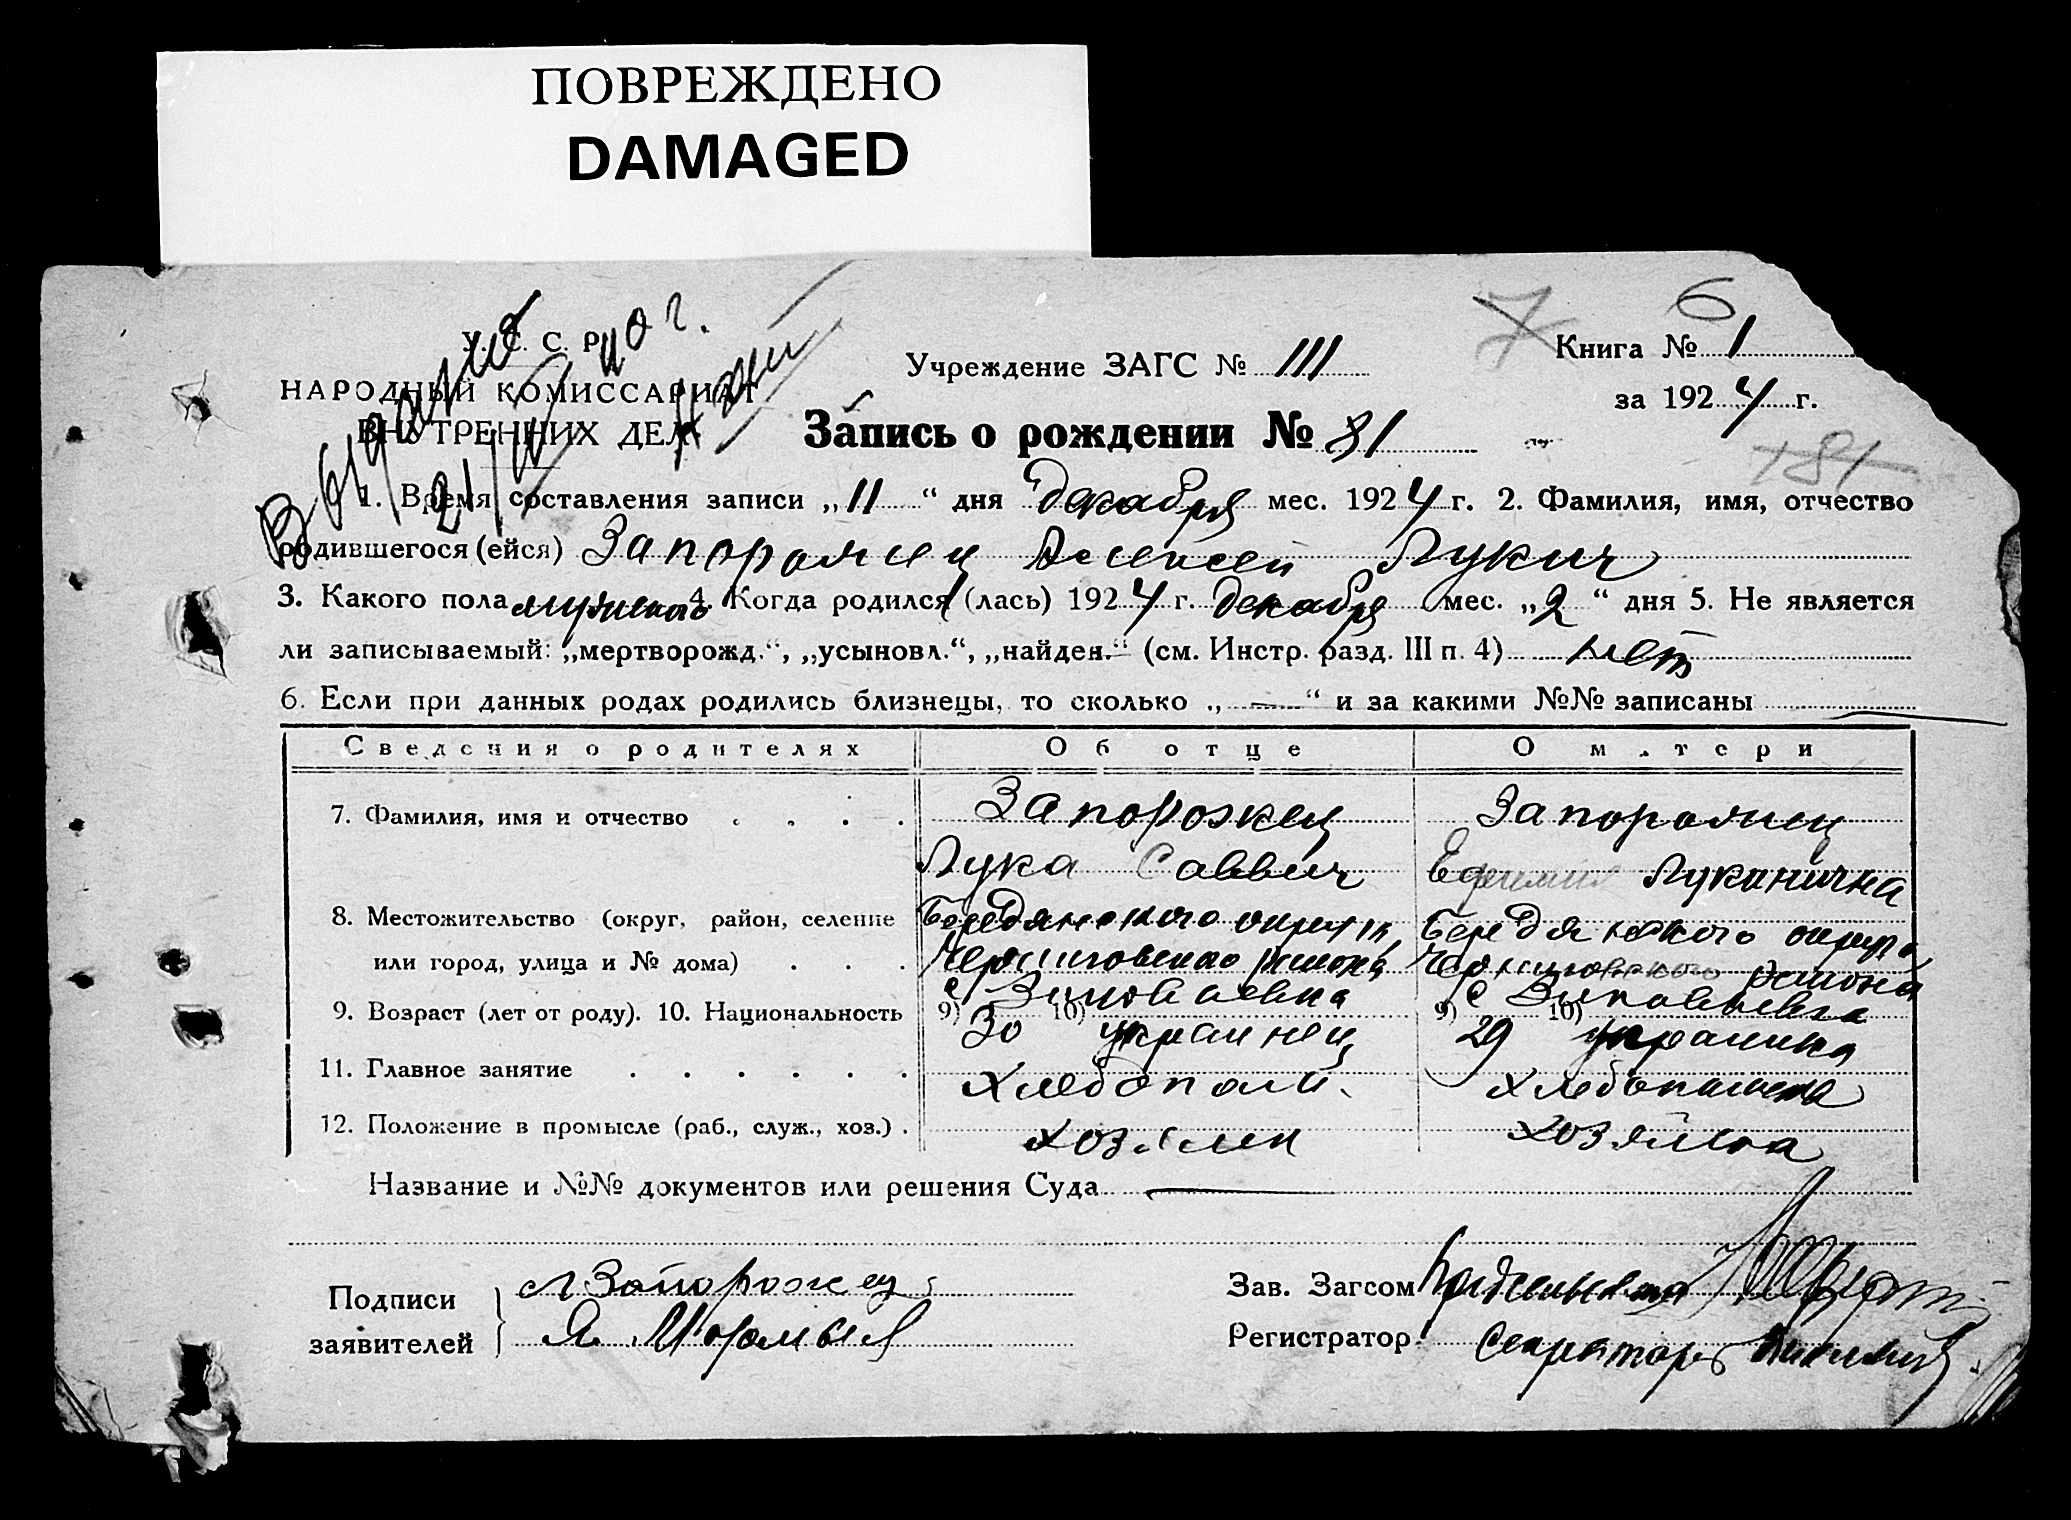 ПОВРЕЖДЕНО
DAMAGED
6
7
У. С. С. Р.
НАРОДНЫЙ КОМИССАРИАТ
ВНУТРЕННИХ ДЕЛ
Выдано
40 г.
Учреждение ЗАГС № 111
Книга № 1
за 1924 г.
Запись о рождении № 81
81
1. Время составления записи „11“ дня декабря мес. 1924 г. 2. Фамилия, имя, отчество
родившегося (ейся) Запорожец Алексей Лукич
3. Какого пола мужского 4. Когда родился (лась) 1924 г. декабря мес. „2“ дня 5. Не является
ли записываемый: „мертворожд.“, „усыновл.“, „найден.“ (см. Инстр. разд. III п. 4) нет
6. Если при данных родах родились близнецы, то сколько „—“ и за какими №№ записаны —
Сведения о родителях Об отце О матери
7. Фамилия, имя и отчество Запорожец Запорожец
Лука Саввич Лукинична
8. Местожительство (округ, район, селение Бердянского округа Бердянского округа
или город, улица и № дома) Черниговского района Черниговского района
с Зиновьевка с Зиновьевка
9. Возраст (лет от роду). 10. Национальность 9) 30 10) украинец 9) 29 10) украинка
11. Главное занятие хлебопаш. хлебопашека
12. Положение в промысле (раб., служ., хоз.) хозяин хозяйка
Название и №№ документов или решения Суда —
Подписи заявителей
Л Запорожец
Я.
Зав. Загсом
Регистратор Секретарь